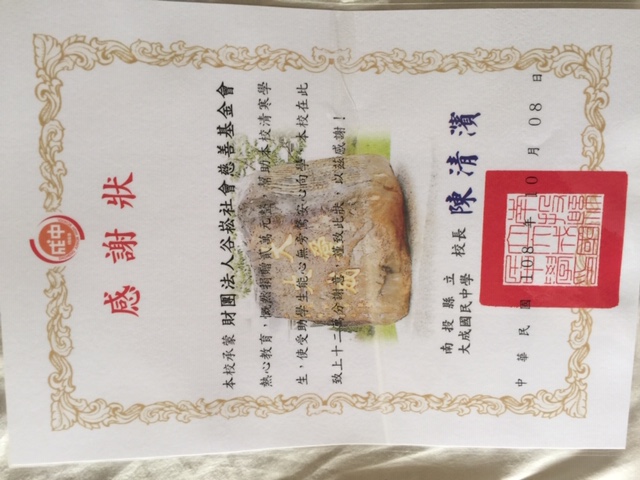 感謝狀
本校承蒙 財團法人谷崧社會慈善基金會
熱心教育，慨然捐贈貳萬元整，幫助本校清寒學
生，使受助學生能心無旁騖安心向學，本校在此
致上十二萬分謝意，謹致此狀，以茲感謝！
大成
南投縣立
大成國民中學 校長 陳清濱
中華民國 108 年 10 月 08 日